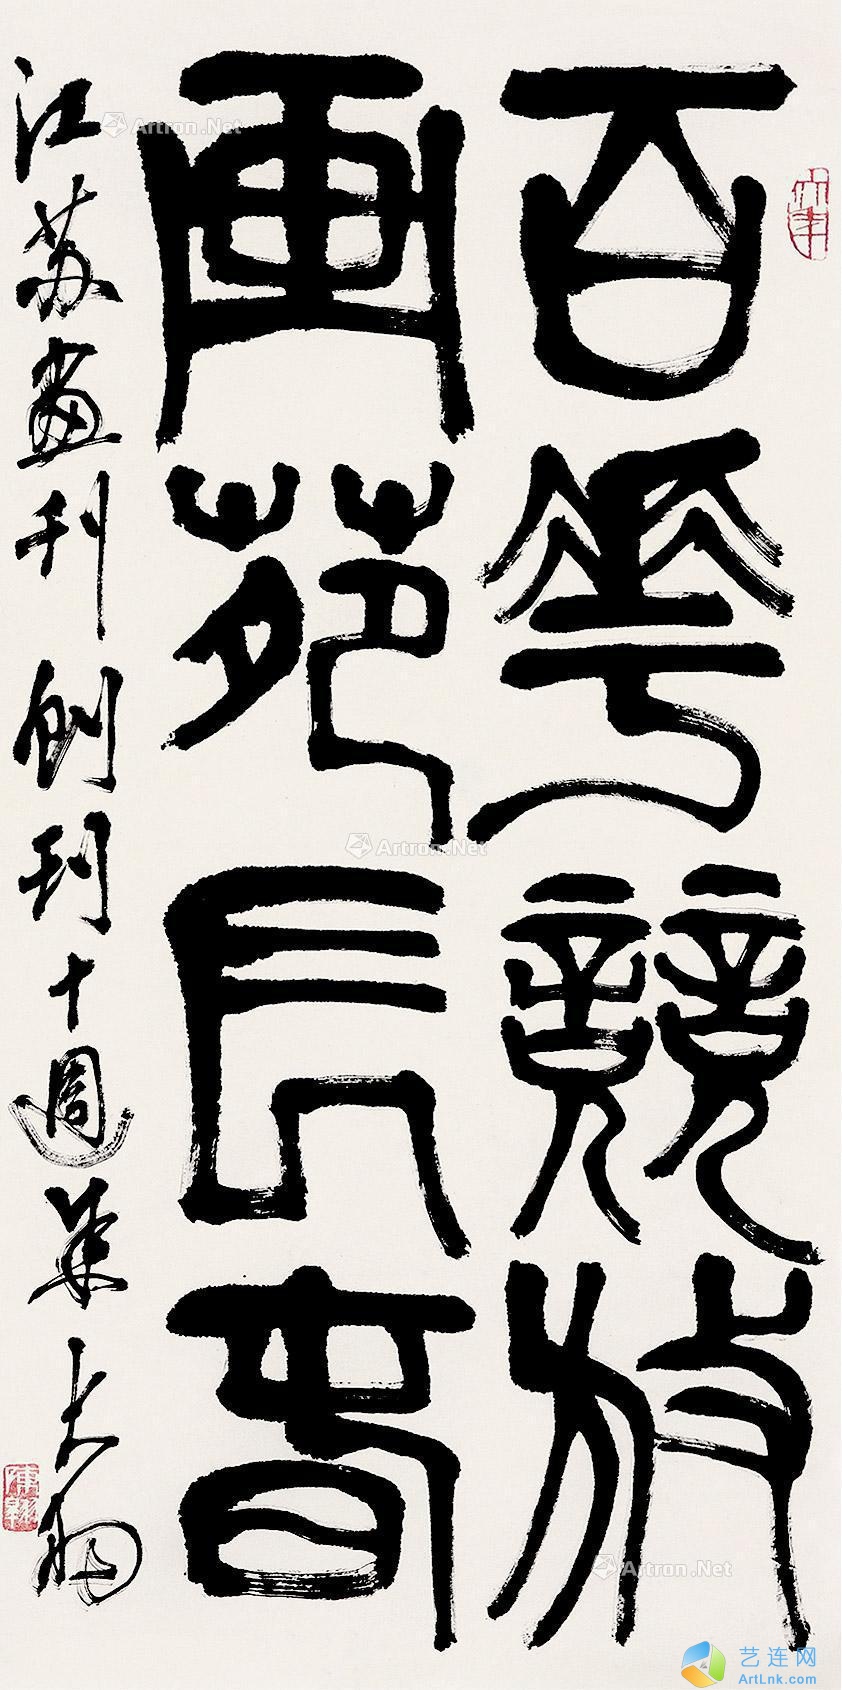 百華競放
画苑長春
江苏畫刊創刊十週年 大羽
Artron.Net
Artron.Net
Artron.Net
艺连网
ArtLnk.com